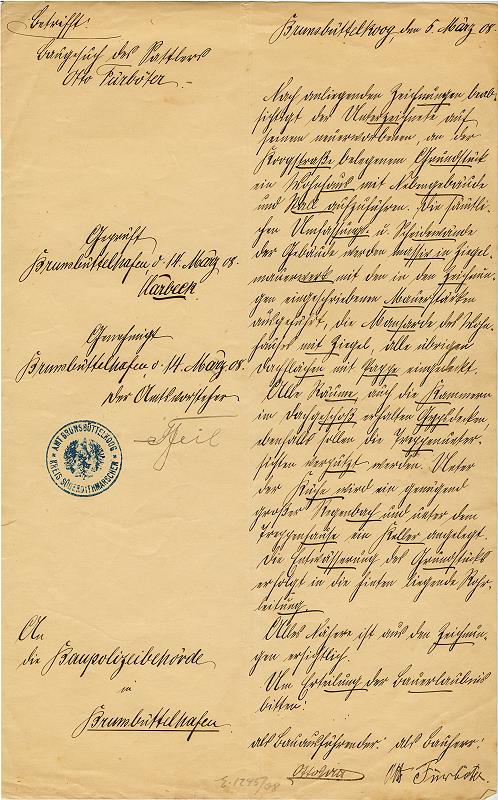 Betrifft:
Baugesuch des Sattlers
Otto Fürböter.
Brunsbüttelkoog, den 5. März 08.
Nach anliegenden Zeichnungen beab-
sichtigt der Unterzeichnete auf
seinem neuerworbenen, an der
Koogstraße belegenem Grundstück
ein Wohnhaus mit Nebengebäude
und Stall aufzuführen. Die sämtli-
chen Umfassungs- u. Scheidewände
der Gebäude werden massiv in Ziegel-
mauerwerk mit den in den Zeichnun-
gen eingeschriebenen Mauerstärken
ausgeführt, die Mansarde des Wohn-
hauses mit Ziegel, alle übrigen
Dachflächen mit Pappe eingedeckt.
Alle Räume, auch die Kammern
im Dachgeschoß erhalten Gypsdecken,
ebenfalls sollen die Treppenunter-
sichten verputzt werden. Unter
der Küche wird ein genügend
großer Regenbach und unter dem
Treppenhause ein Keller angelegt.
Die Entwässerung des Grundstücks
erfolgt in die hinten liegende Rohr-
leitung.
Alles Nähere ist aus den Zeichnun-
gen ersichtlich.
Um Erteilung der Bauerlaubnis
bitten:
als Bauausführender: als Bauherr:
Otto Fürböter
Geprüft
Brunsbüttelhafen, d. 14. März 08.
Genehmigt
Brunsbüttelhafen d. 14. März 08.
Der Amtsvorsteher
AMT BRUNSBÜTTELKOOG
KREIS SÜDERDITHMARSCHEN
An
die Baupolizeibehörde
in
Brunsbüttelhafen.
E. 1245/08